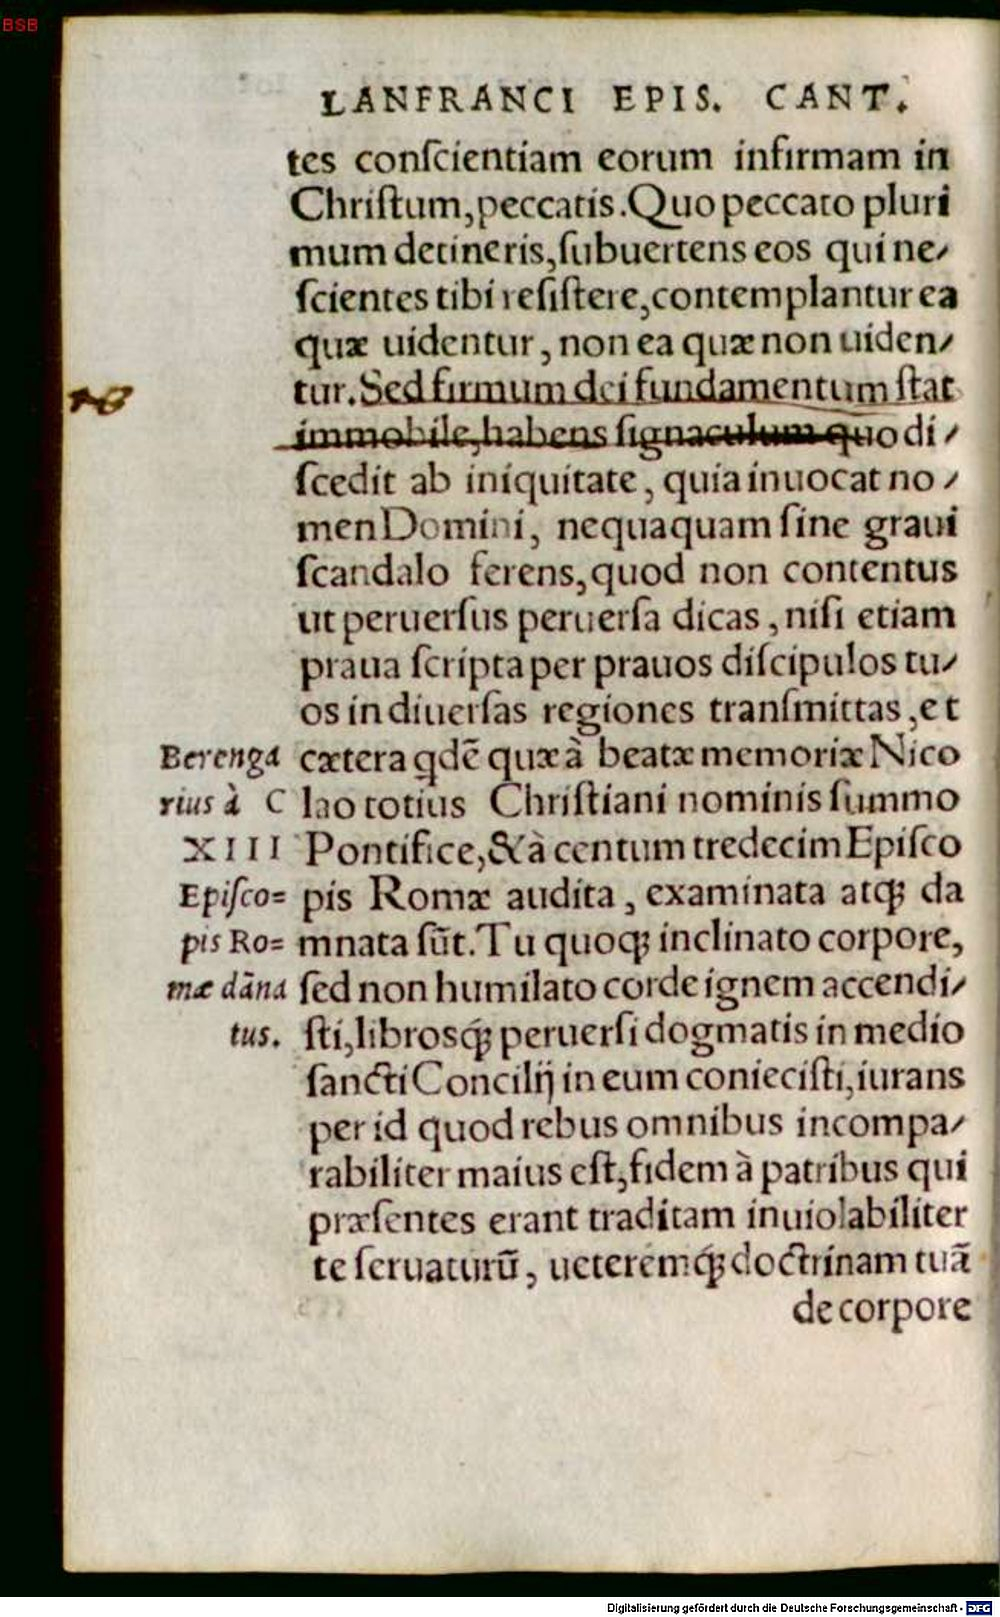 BSB
LANFRANCI EPIS. CANT.
tes conſcientiam eorum infirmam in
Chriſtum,peccatis.Quo peccato pluri
mum detineris,ſubuertens eos qui ne⸗
ſcientes tibi reſiſtere,contemplantur ea
quæ uidentur, non ea quæ non uiden⸗
tur.Sed firmum dei fundamentum ſtat
immobile,habens ſignaculum quo di⸗
ſcedit ab iniquitate, quia inuocat no⸗
men Domini, nequaquam ſine graui
ſcandalo ferens,quod non contentus
ut peruerſus peruerſa dicas, niſi etiam
praua ſcripta per prauos diſcipulos tu⸗
os in diuerſas regiones tranſmittas,et
cætera qdē quæ à beatæ memoriæ Nico
lao totius Chriſtiani nominis ſummo
Pontifice,&à centum tredecim Epiſco
pis Romæ audita, examinata atqꝫ da
mnata ſūt.Tu quoqꝫ inclinato corpore,
ſed non humilato corde ignem accendi⸗
ſti,librosq́ꝫ peruerſi dogmatis in medio
ſancti Concilij in eum conieciſti,iurans
per id quod rebus omnibus incompa⸗
rabiliter maius eſt,fidem à patribus qui
præſentes erant traditam inuiolabiliter
te ſeruaturū, ueteremq́ꝫ doctrinam tuā
de corpore
Berenga
rius à C
XIII
Epiſco=
pis Ro=
mæ dāna
tus.
Digitalisierung gefördert durch die Deutsche Forschungsgemeinschaft - DFG